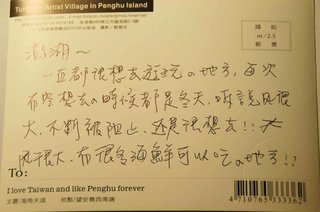 Artist Village In Penghu Island
請貼
m/2.5
郵票
澎湖～
一直都很想去遊玩の地方,每次
有空想去の時候都是冬天,听說風很
大,不斷被阻止,還是很想去!!
風很大,有很多海鮮可以吃の地方!!
To:
I love Taiwan and like Penghu forever
主題/海角天涯 地點/望安島西南端
4 710765 333362